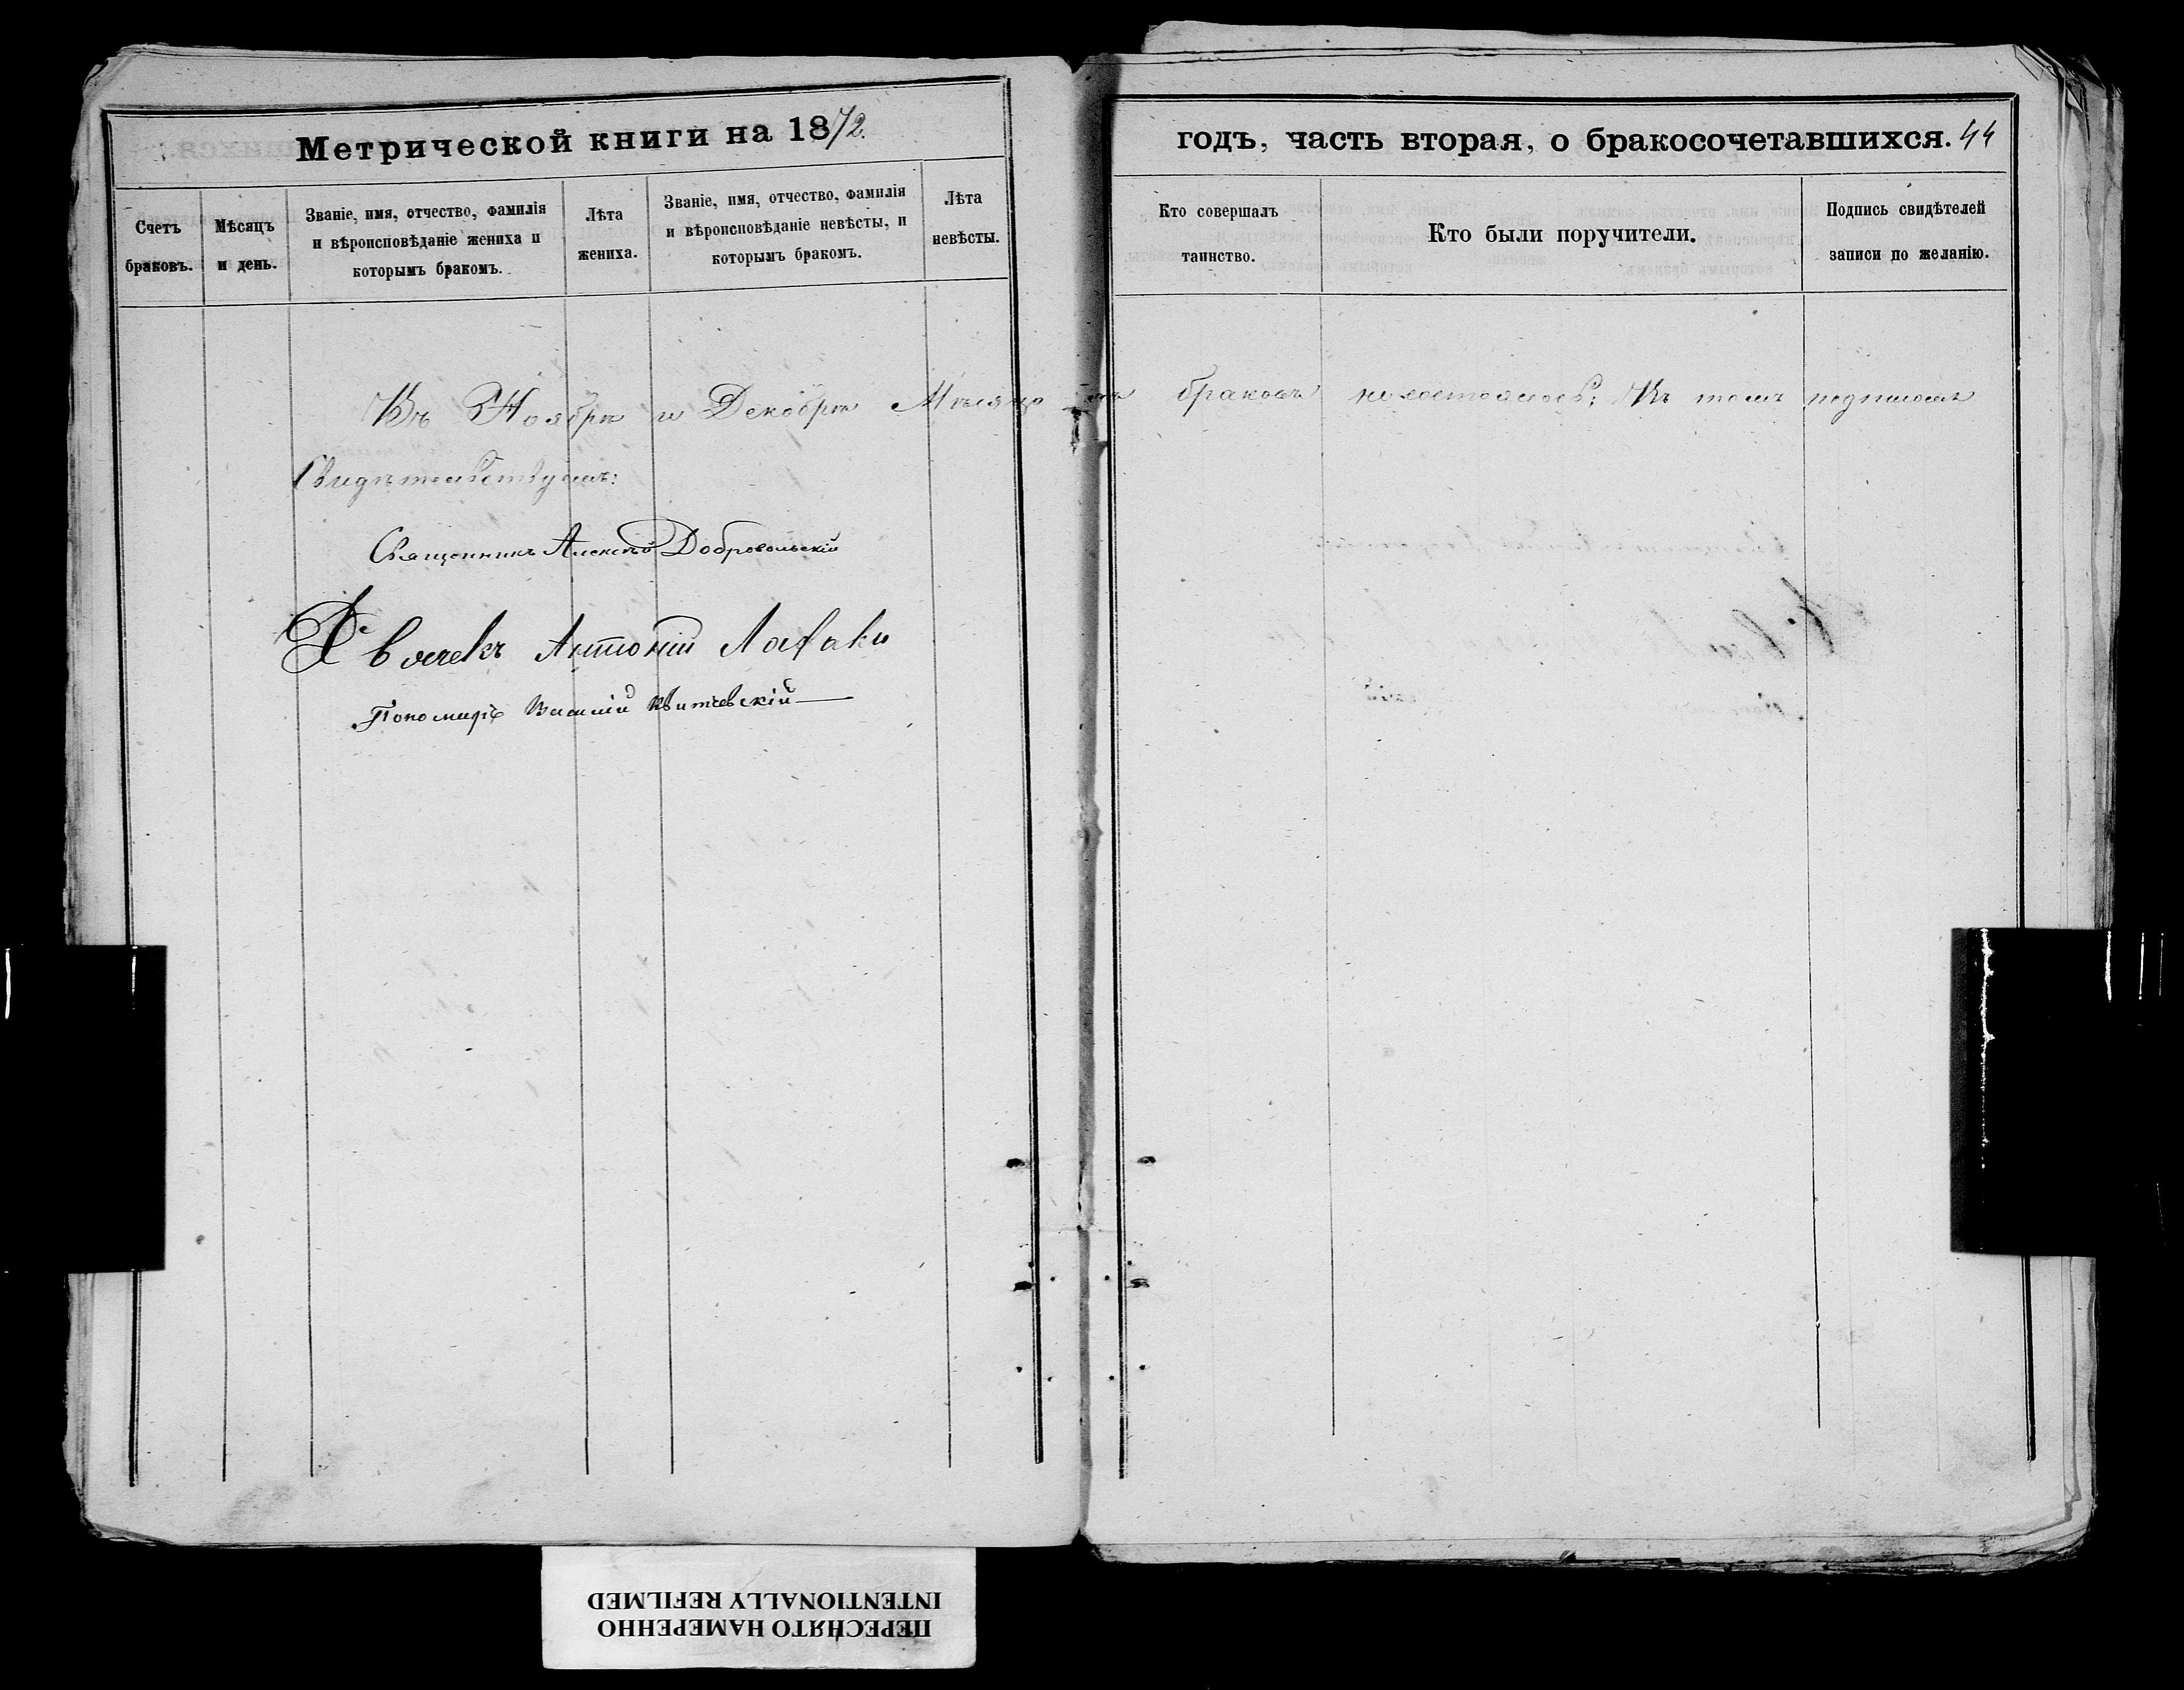 Метрической книги на 1872.
Счетъ браковъ.
Мѣсяцъ и день.
Званіе, имя, отчество, фамилія и вѣроисповѣданіе жениха и которымъ бракомъ.
Лѣта жениха.
Званіе, имя, отчество, фамилія и вѣроисповѣданіе невѣсты, и которымъ бракомъ.
Лѣта невѣсты.
годъ, часть вторая, о бракосочетавшихся. 44
Кто совершалъ таинство.
Кто были поручители.
Подпись свидѣтелей записи по желанію.
Въ Ноябрѣ и Декабрѣ браковъ несостоялось; Въ томъ подписомъ
Свидѣтельствуемъ:
Священникъ Алексѣй Добровольскій
Антоній
Пономарь Василій Квитчевскій
ПЕРЕСНЯТО НАМЕРЕННО
INTENTIONALLY REFILMED